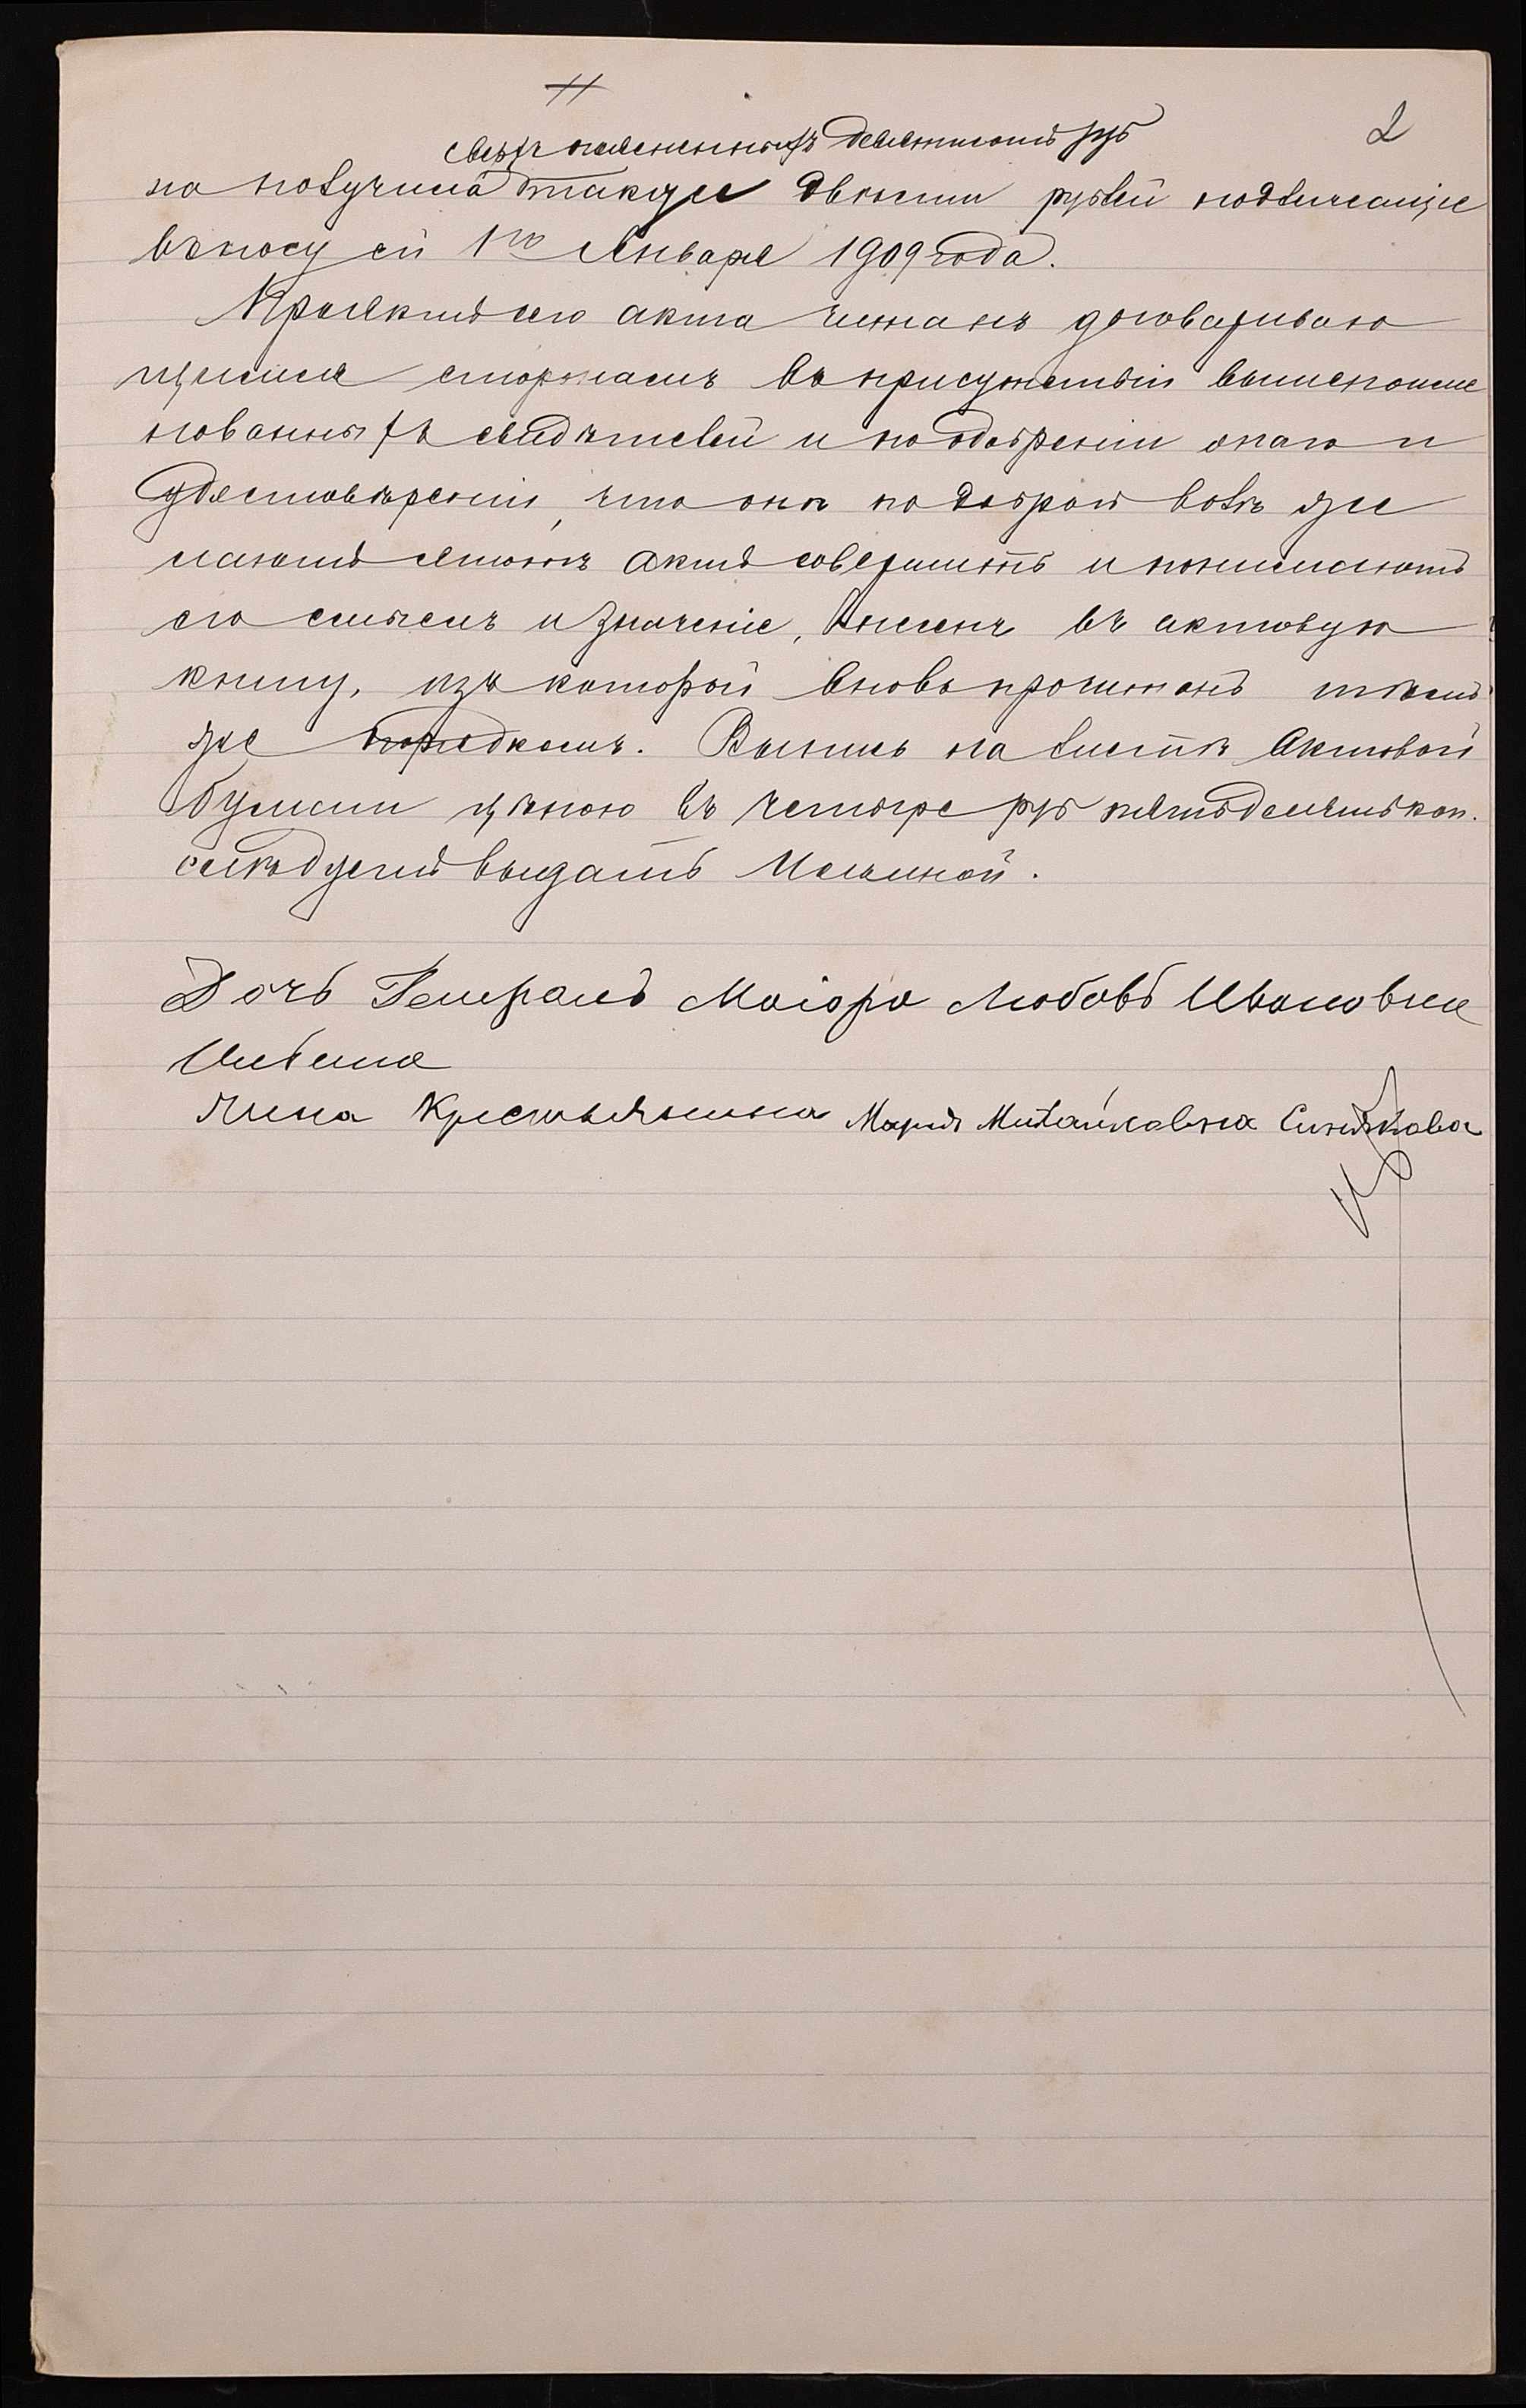 2
сверхъ поясненныхъ девятисотъ руб
на получила также двѣсти рублей подлежащіе
взносу ей 1го Января 1909 года.
Проектъ сего акта читанъ договариваю
щимися сторонамъ въ присутствіи вышепоиме
нованныхъ свидѣтелей и по одобреніи онаго и
удостовѣреніи, что они по доброй волѣ же
лаютъ актъ совершить и понимаютъ
его смыслъ и значеніе, внесенъ въ актовую
книгу, изъ которой вновь прочитанъ тѣмъ
же порядкомъ. Выпись на листѣ Актовой
бумаги цѣною въ четыре руб пятьдесятъ коп.
слѣдуетъ выдать
Дочь Генералъ Маіора Любовь Ивановна
Крестьянка Марія Михайловна